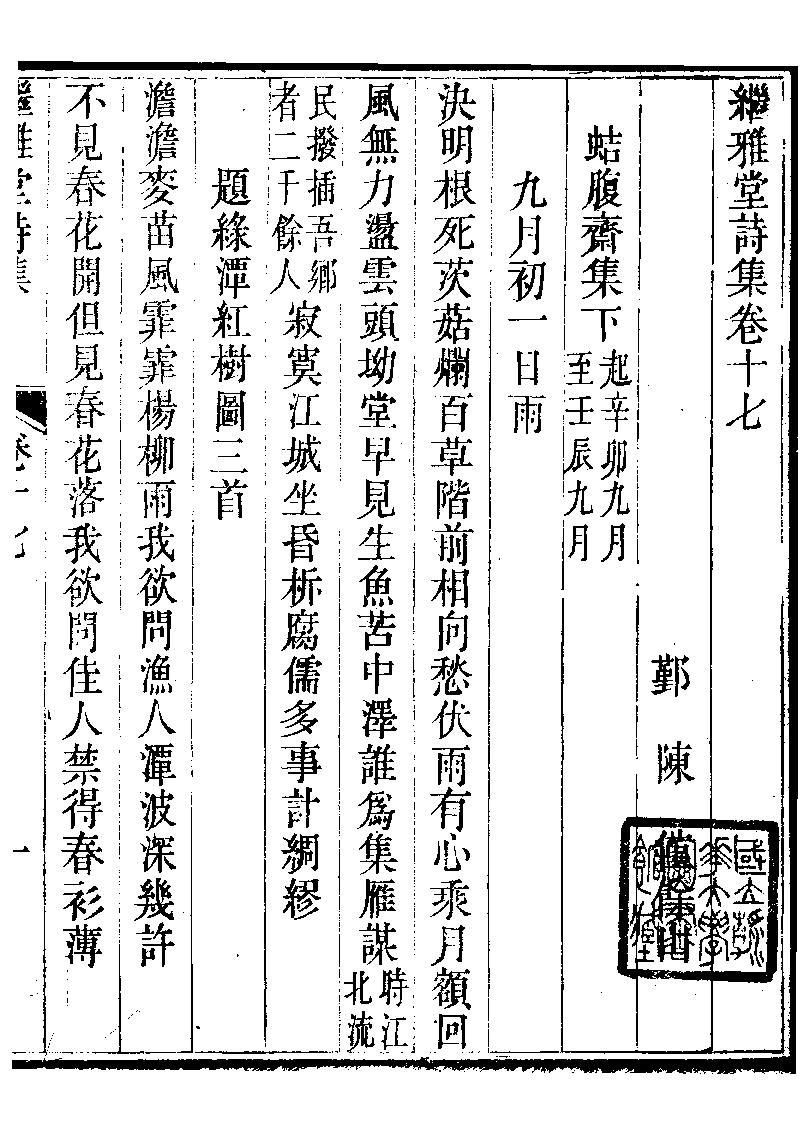 繼雅堂詩集卷十七
鄞　陳
蛣腹齋集下 起辛卯九月至壬辰九月
九月初一日雨
決明根死茨菇爛百草階前相向愁伏雨有心乘月額回
風無力盪雲頭坳堂早見生魚苦中澤誰爲集雁謀 時江北流
民撥插吾鄉者二千餘人 寂寞江城坐昏柝腐儒多事計綢繆
題綠潭紅樹圖三首
澹澹麥苗風霏霏楊柳雨我欲問漁人潭波深幾許
不見春花開但見春花落我欲問佳人禁得春衫薄
繼雅堂詩集
卷十七
一